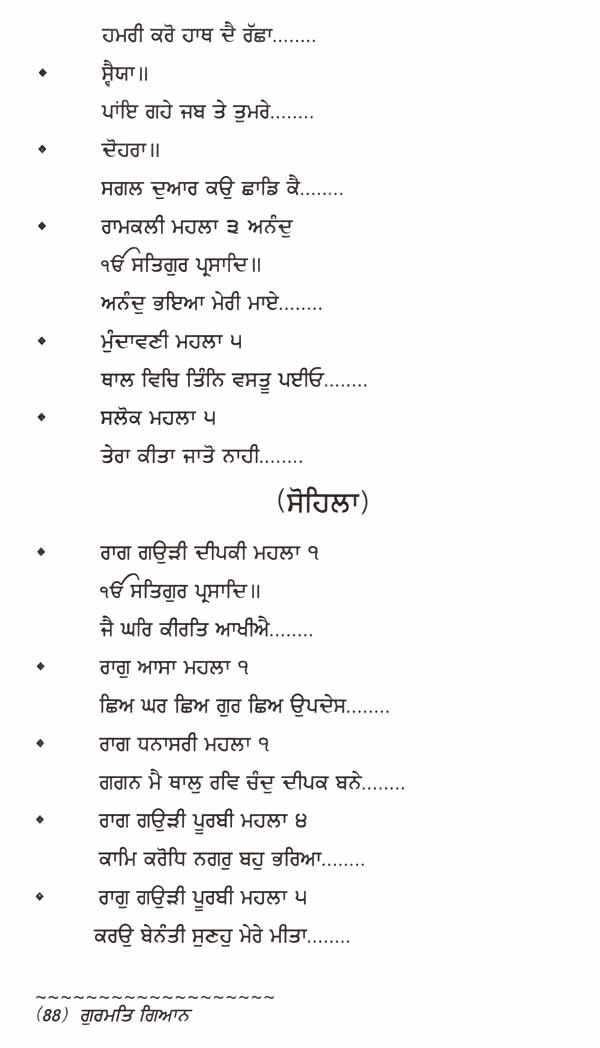 ਹਮਰੀ ਕਰੋ ਹਾਥ ਦੈ ਰੱਛਾ........
ਸ੍ਵੈਯਾ॥
ਪਾਂਇ ਗਹੇ ਜਬ ਤੇ ਤੁਮਰੇ........
ਦੋਹਰਾ॥
ਸਗਲ ਦੁਆਰ ਕਉ ਛਾਡਿ ਕੈ........
ਰਾਮਕਲੀ ਮਹਲਾ ੩ ਅਨੰਦੁ
ੴ ਸਤਿਗੁਰ ਪ੍ਰਸਾਦਿ॥
ਅਨੰਦੁ ਭਇਆ ਮੇਰੀ ਮਾਏ........
ਮੁੰਦਾਵਣੀ ਮਹਲਾ ੫
ਥਾਲ ਵਿਚਿ ਤਿੰਨਿ ਵਸਤੂ ਪਈਓ........
ਸਲੋਕ ਮਹਲਾ ੫
ਤੇਰਾ ਕੀਤਾ ਜਾਤੋ ਨਾਹੀ........
(ਸੋਹਿਲਾ)
ਰਾਗ ਗਉੜੀ ਦੀਪਕੀ ਮਹਲਾ ੧
ੴ ਸਤਿਗੁਰ ਪ੍ਰਸਾਦਿ॥
ਜੈ ਘਰਿ ਕੀਰਤਿ ਆਖੀਐ........
ਰਾਗੁ ਆਸਾ ਮਹਲਾ ੧
ਛਿਅ ਘਰ ਛਿਅ ਗੁਰ ਛਿਅ ਉਪਦੇਸ........
ਰਾਗ ਧਨਾਸਰੀ ਮਹਲਾ ੧
ਗਗਨ ਮੈ ਥਾਲੁ ਰਵਿ ਚੰਦੁ ਦੀਪਕ ਬਨੇ........
ਰਾਗ ਗਉੜੀ ਪੂਰਬੀ ਮਹਲਾ ੪
ਕਾਮਿ ਕਰੋਧਿ ਨਗਰੁ ਬਹੁ ਭਰਿਆ........
ਰਾਗੁ ਗਉੜੀ ਪੂਰਬੀ ਮਹਲਾ ੫
ਕਰਉ ਬੇਨੰਤੀ ਸੁਣਹੁ ਮੇਰੇ ਮੀਤਾ........
~~~~~~~~~~~~~~~~~~~
(88) ਗੁਰਮਤਿ ਗਿਆਨ